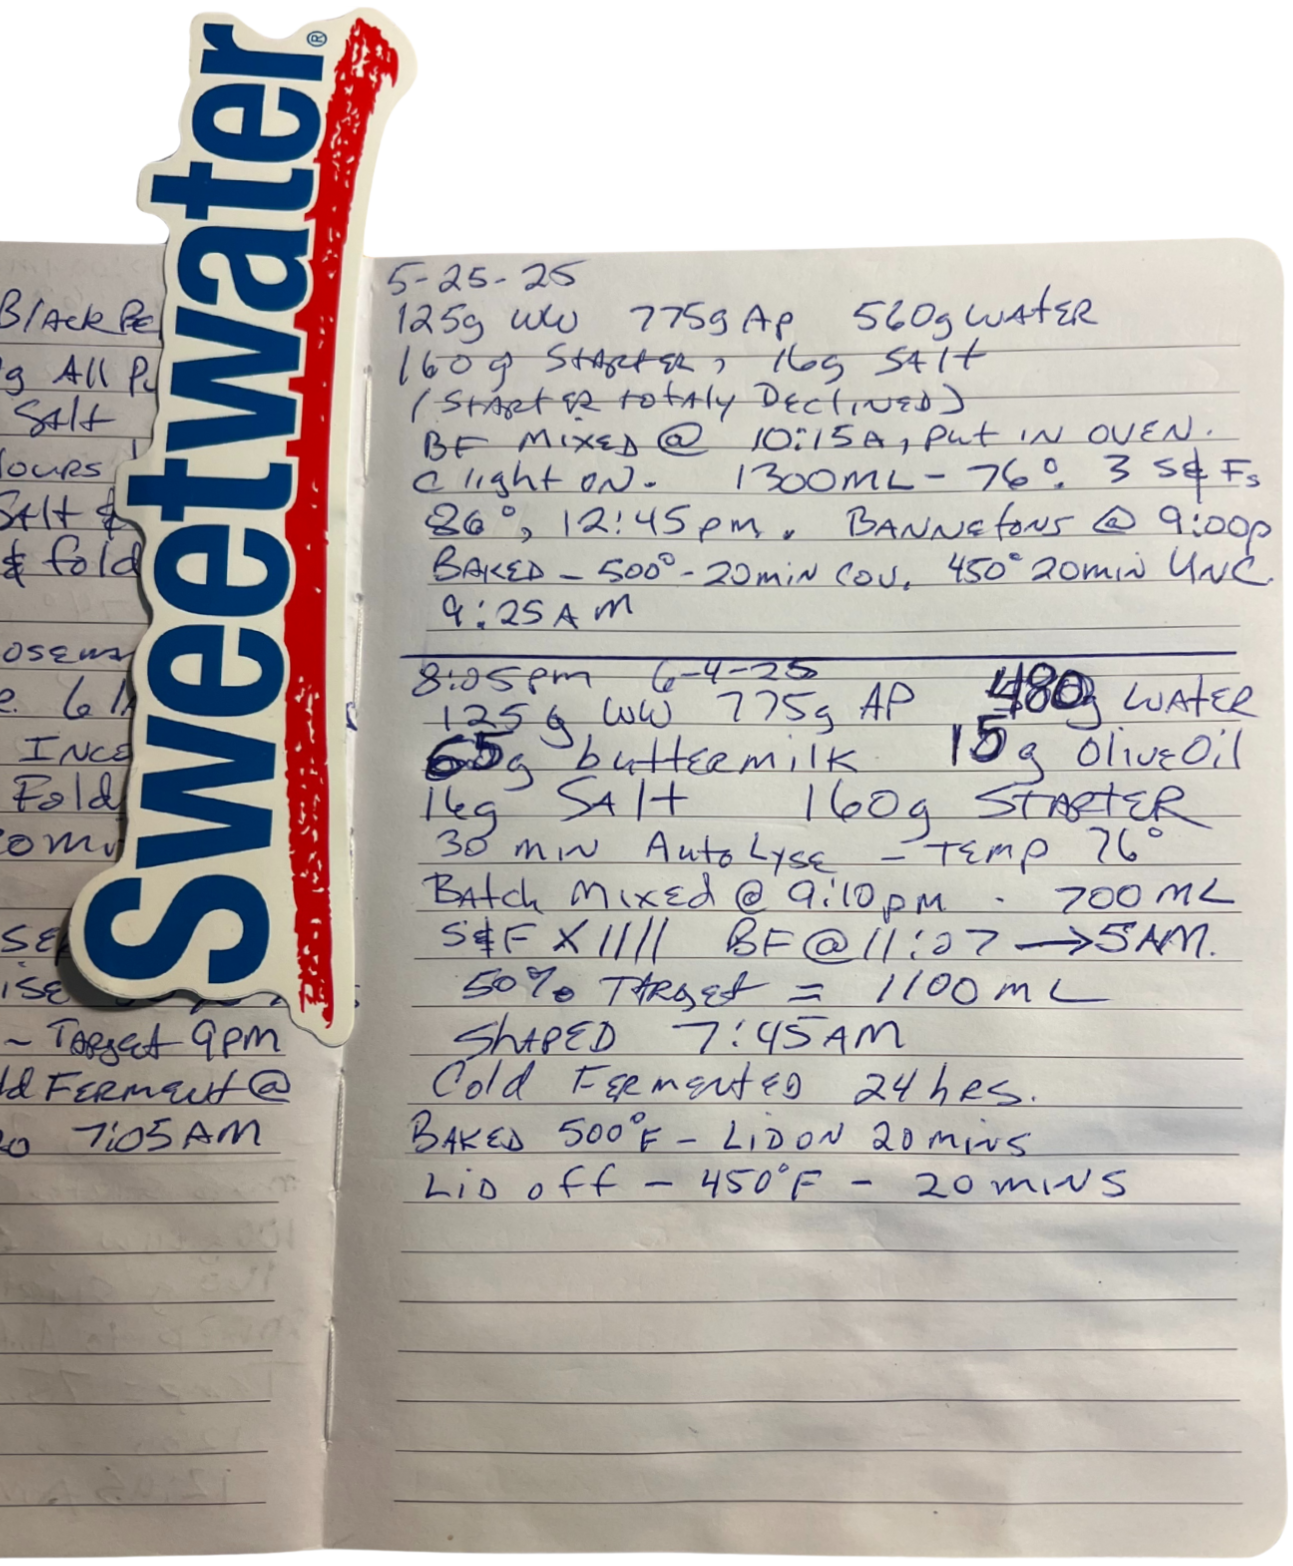 Sweetwater®
Black Pe
g All Pu
Salt
Hours
Salt &
& fold
osema
e. 6/
Ince
Fold
0m
SE
ise
~ Target 9pm
ld Ferment @
20 7:05 AM
5-25-25
125g WW 775g AP 560g WATER
160g STARTER, 16g SALT
(STARTER totAly DECLINED)
BF MIXED @ 10:15A, put IN OVEN.
C light ON. 1300ML - 76°. 3 S&Fs
86°, 12:45pm. BANNEtONS @ 9:00p
BAKED - 500° - 20min COV. 450° 20min UNC.
9:25AM
8:05pm 6-4-25
125g WW 775g AP 480g WATER
65g buttermilk 15g Olive Oil
16g SALT 160g STARTER
30 min AutoLyse - TEMP 76°
BAtch Mixed @ 9:10pm . 700 ML
S&F X //// BF @ 11:07 → 5AM.
50% TARget = 1100 mL
SHAPED 7:45AM
Cold FERMENTED 24 hrs.
BAKED 500°F - LID ON 20 mins
LiD off - 450°F - 20 mins